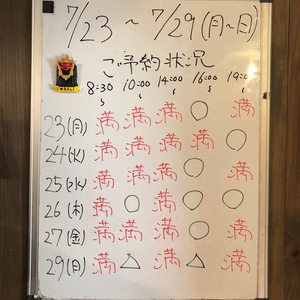 7/23 ~ 7/29(月~日)
ご予約状況
8:30 10:00 14:00 16:00 19:00
23(月) 満 満 満 ○ 満
24(火) 満 満 満 満 ○
25(水) 満 満 満 ○ 満
26(木) 満 ○ 満 満 ○
27(金) 満 満 満 ○ 満
29(日) 満 △ 満 △ 満
BALI